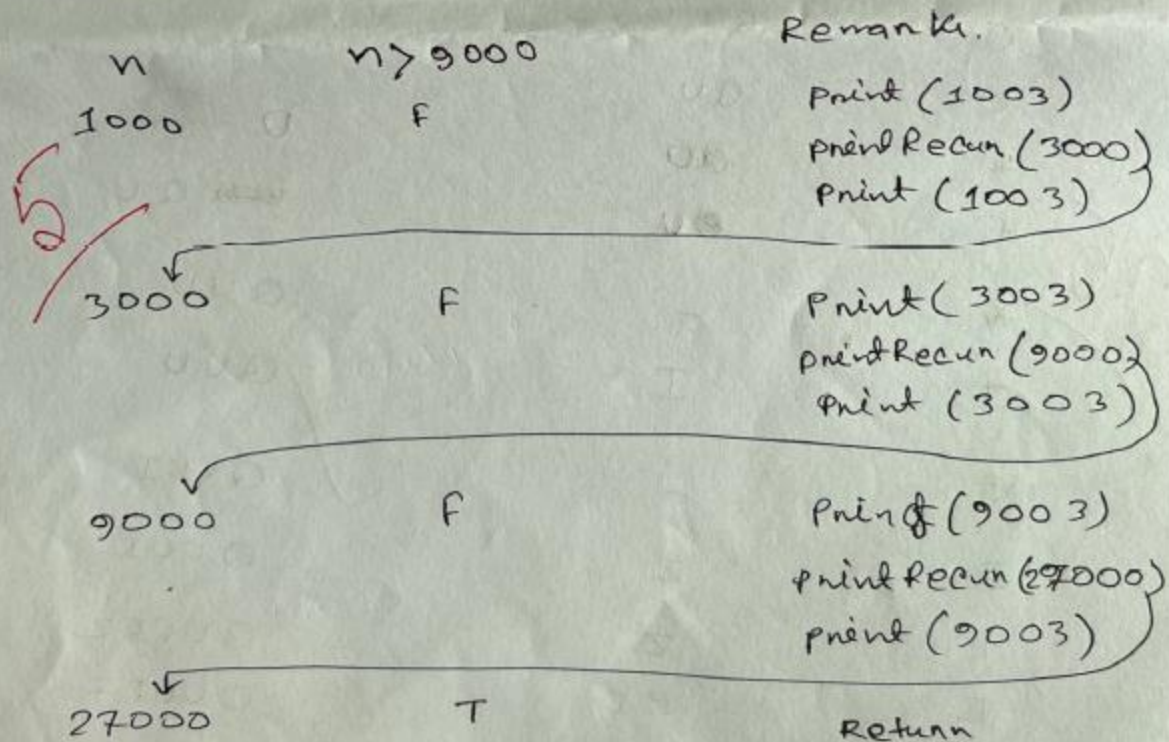 n n>9000 Remark.
1000 F print (1003)
printRecur (3000)
print (1003)
5
3000 F print (3003)
printRecur (9000)
print (3003)
9000 F print (9003)
printRecur (27000)
print (9003)
27000 T Return